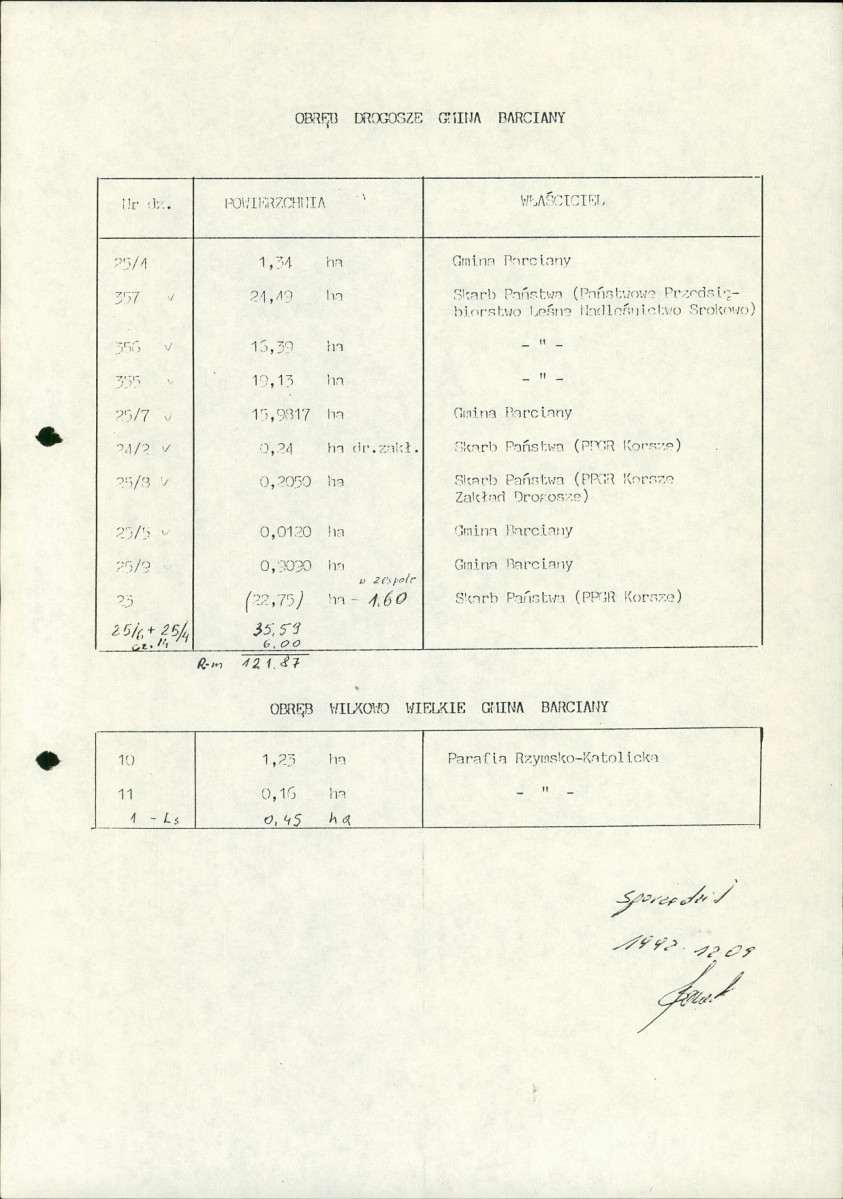 OBRĘB DROGOSZE GMINA BARCIANY
Nr dz. POWIERZCHNIA WŁAŚCICIEL
25/4 1,34 ha Gmina Barciany
357 v 24,49 ha Skarb Państwa (Państwowe Przedsię-
biorstwo Leśne Nadleśnictwo Srokowo)
356 v 16,39 ha - " -
355 v 19,13 ha - " -
25/7 v 15,9817 ha Gmina Barciany
24/2 v 0,24 ha dr.zakł. Skarb Państwa (PPGR Korsze)
25/8 v 0,2050 ha Skarb Państwa (PPGR Korsze
Zakład Drogosze)
25/5 v 0,0120 ha Gmina Barciany
25/9 v 0,9090 ha Gmina Barciany
w zespole
23 (22,75) ha - 1,60 Skarb Państwa (PPGR Korsze)
25/6 + 25/4 35.59
cz. 14 6.00
R-m 121.87
OBRĘB WILKOWO WIELKIE GMINA BARCIANY
10 1,23 ha Parafia Rzymsko-Katolicka
11 0,16 ha - " -
1 - Ls 0,45 ha
sporządził
1992.12 09